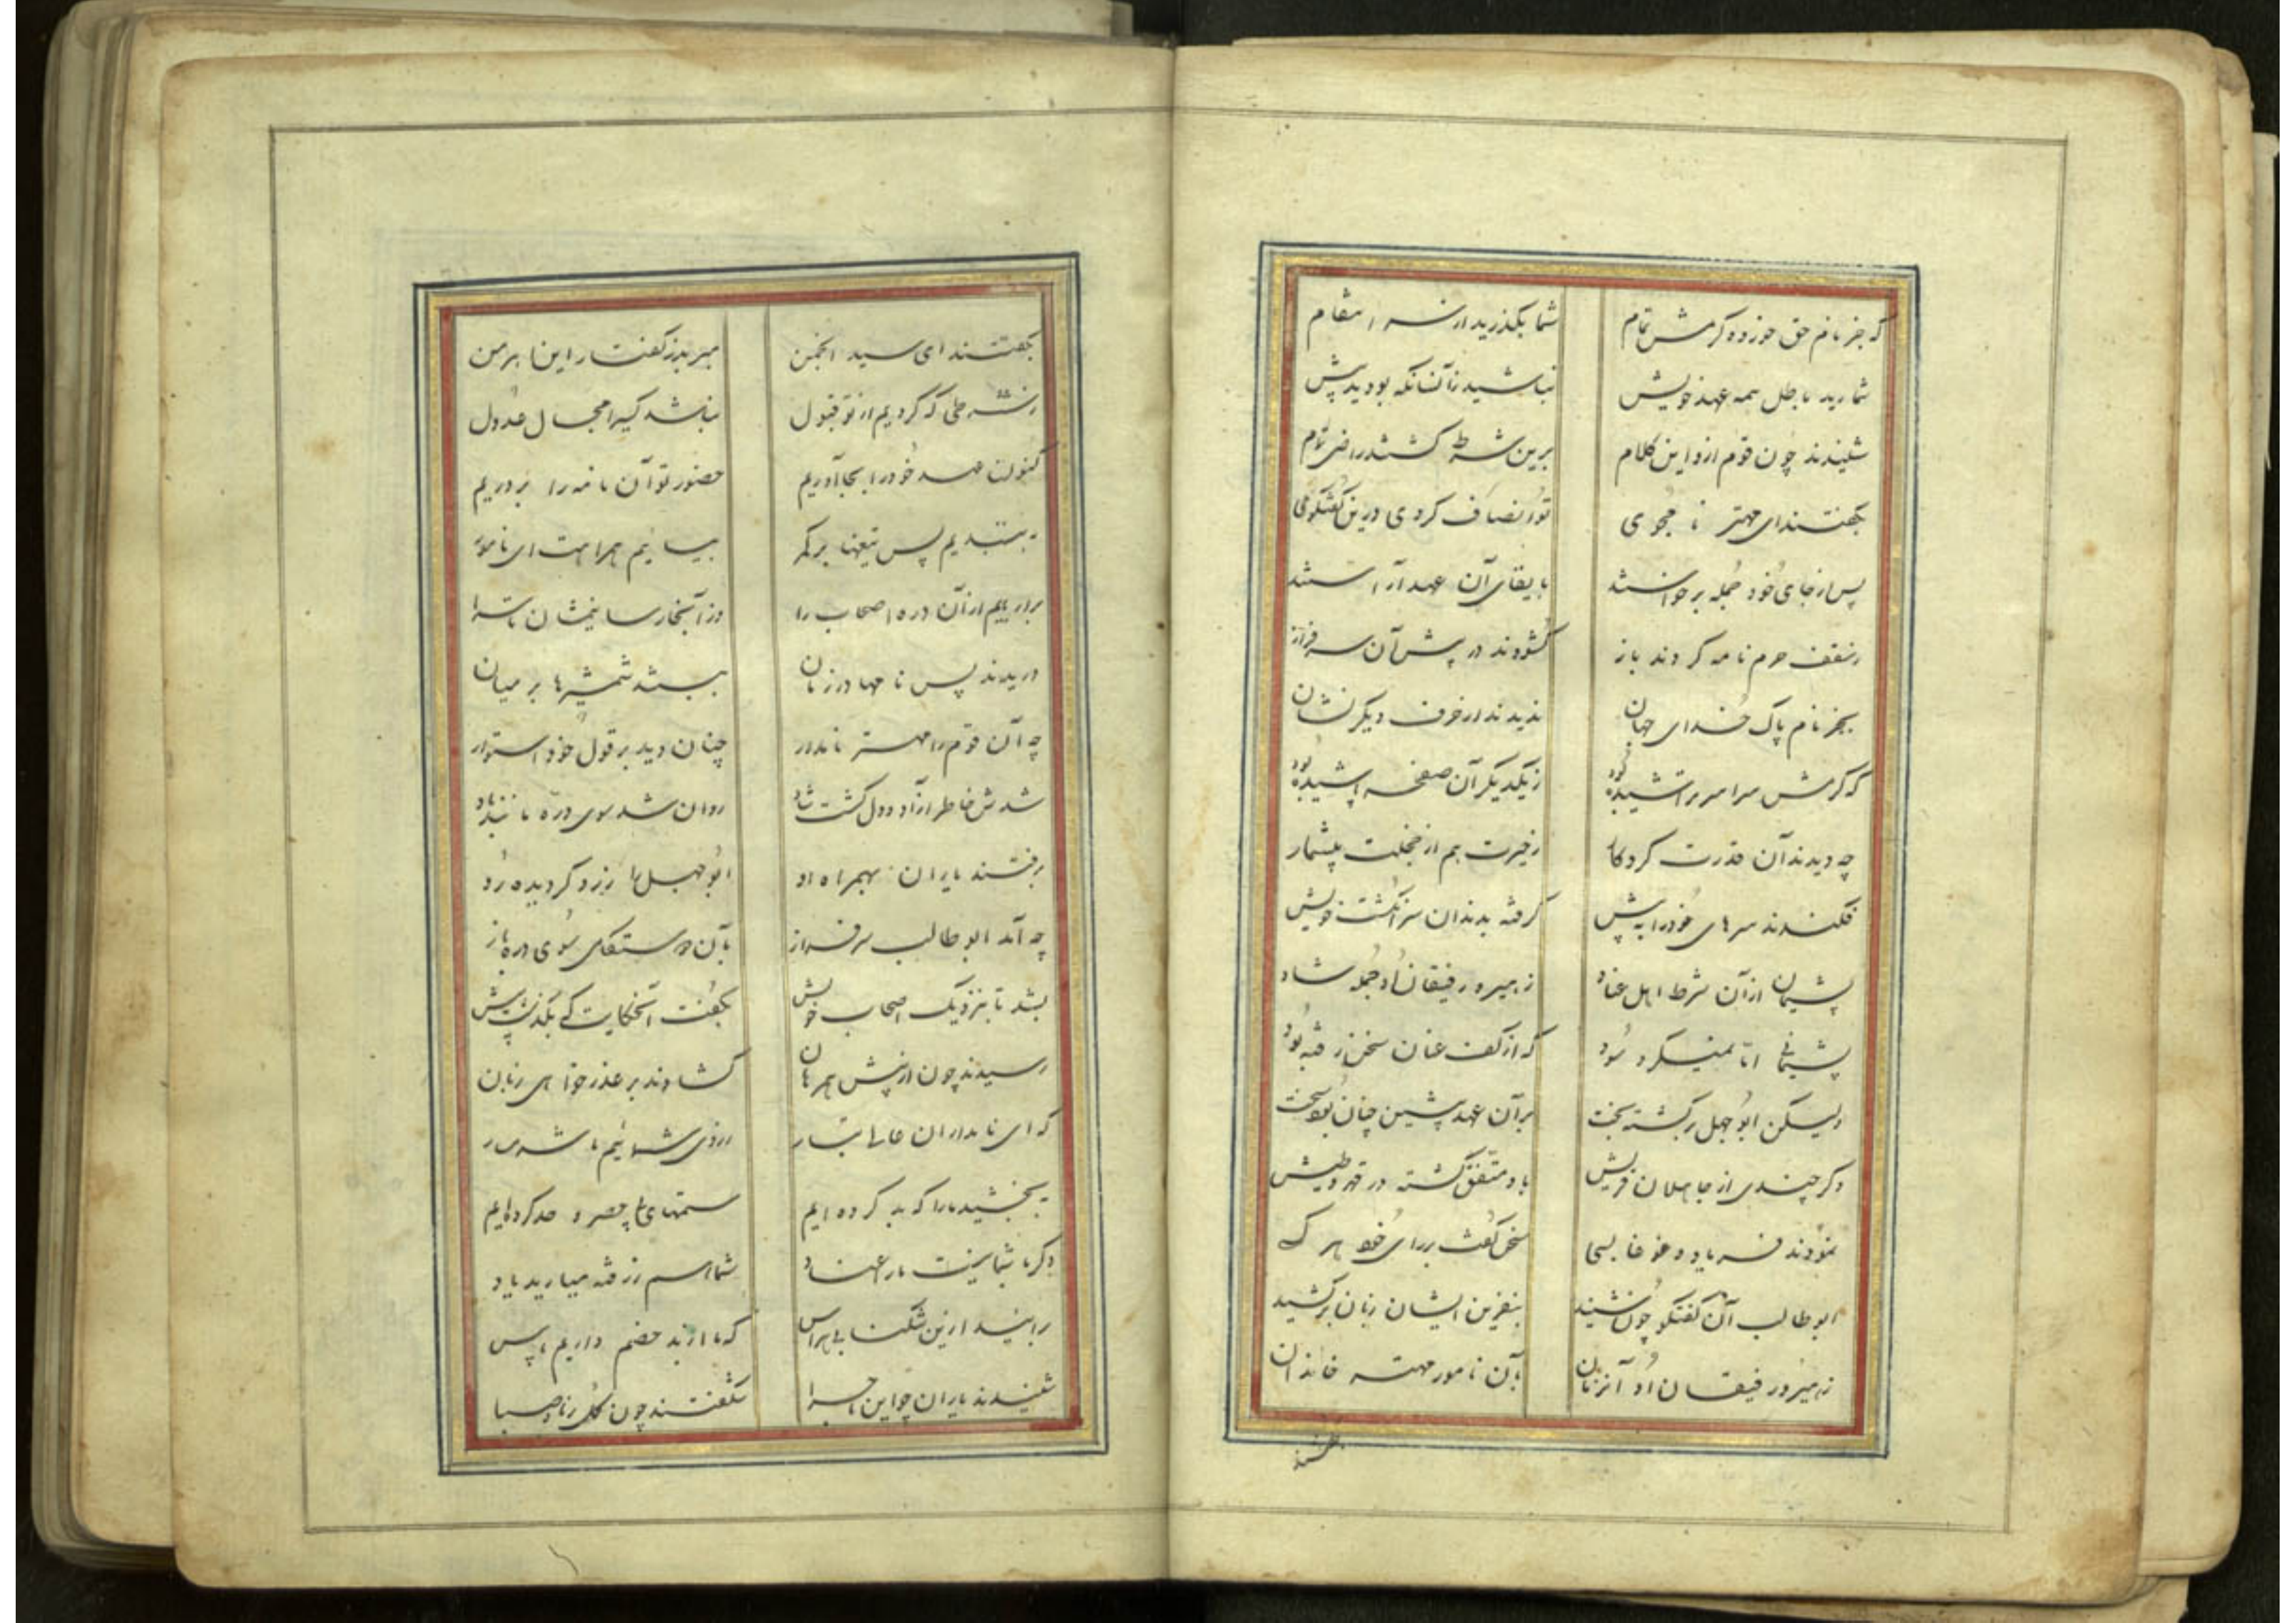 که جز نام حق خورده کرمش تمام شما بگذرید از سر انتقام
شمارید باطل همه عهد خویش نباشید زآنسانکه بودید پیش
شنیدند چون قوم ازو این کلام برین شرط گشتند راضی تمام
بگفتند ای مهتر نامجوی تو انصاف کردی درین گفتگوی
پس از جای خود جمله برخواستند بایفای آن عهد آراستند
ز سقف حرم نامه کردند باز گشودند در پیش آن سرفراز
بجز نام پاک خدای جهان ندیدند از حرف دیگر نشان
که کرمش سراسر تراشیده بود ز یکدیگر آن صفحه پاشیده بود
چه دیدند آن قدرت کردگار ز حیرت هم از خجلت بیشمار
فکندند سرهای خود را به پیش گرفته بدندان سرانگشت خویش
پشیمان از آن شرط اهل عناد زهیر و رفیقان او جمله شاد
پشیمانی اما نمیکرد سود که از کف عنان سخن رفته بود
ولیکن ابوجهل برگشته بخت بر آن عهد پیشین چنان بود سخت
دگر چندی از جاهلان قریش باو متفق گشته در قهر و طیش
نمودند فریاد و غوغا بسی سخن گفت بر رای خود هر کسی
ابوطالب آن گفتگو چون شنید بنفرین ایشان زبان برکشید
زهیر و رفیقان او آنزمان بآن نامور مهتر خاندان
بگفتند
بگفتند ای سید انجمن مبر بد ز گفتار اینا بر من
ز شرطی که کردیم از تو قبول نباشد کسیرا مجال عدول
کنون عهد خود را بجا آوریم حضور تو آن نامه را بردریم
ببندیم پس تیغها بر کمر بیائیم همراهت ای نامور
برآریم از آن دره اصحاب را وز آنجا رسانیمشان تا سرا
دریدند پس نامها در زمان ببستند شمشیرها بر میان
چه آن قوم را مهتر نامدار چنان دید بر قول خود استوار
شدش خاطر آزاد و دل گشت شاد روان شد سوی دره
برفتند یاران بهمراه او ابوجهل را زرد گردیده رو
چه آمد ابوطالب سرفراز بآن رستگای سوی دره باز
بشد تا بنزدیک اصحاب خویش بگفت آنحکایت که بگذشت پیش
رسیدند چون از پیش همرهان گشادند بر عذرخواهی زبان
که ای نامداران عالی تبار ز روی شمائیم ما شرمسار
ببخشید ما را که بد کرده‌ایم ستمهای بیحصر و حد کرده‌ایم
دگر با شما نیست ما را عناد شما هم ز رفته میارید یاد
برآئید ازین تنگنا بی هراس که ما از بد خصم داریم پاس
شنیدند یاران چو این ماجرا شگفتند چون گل ز باد صبا